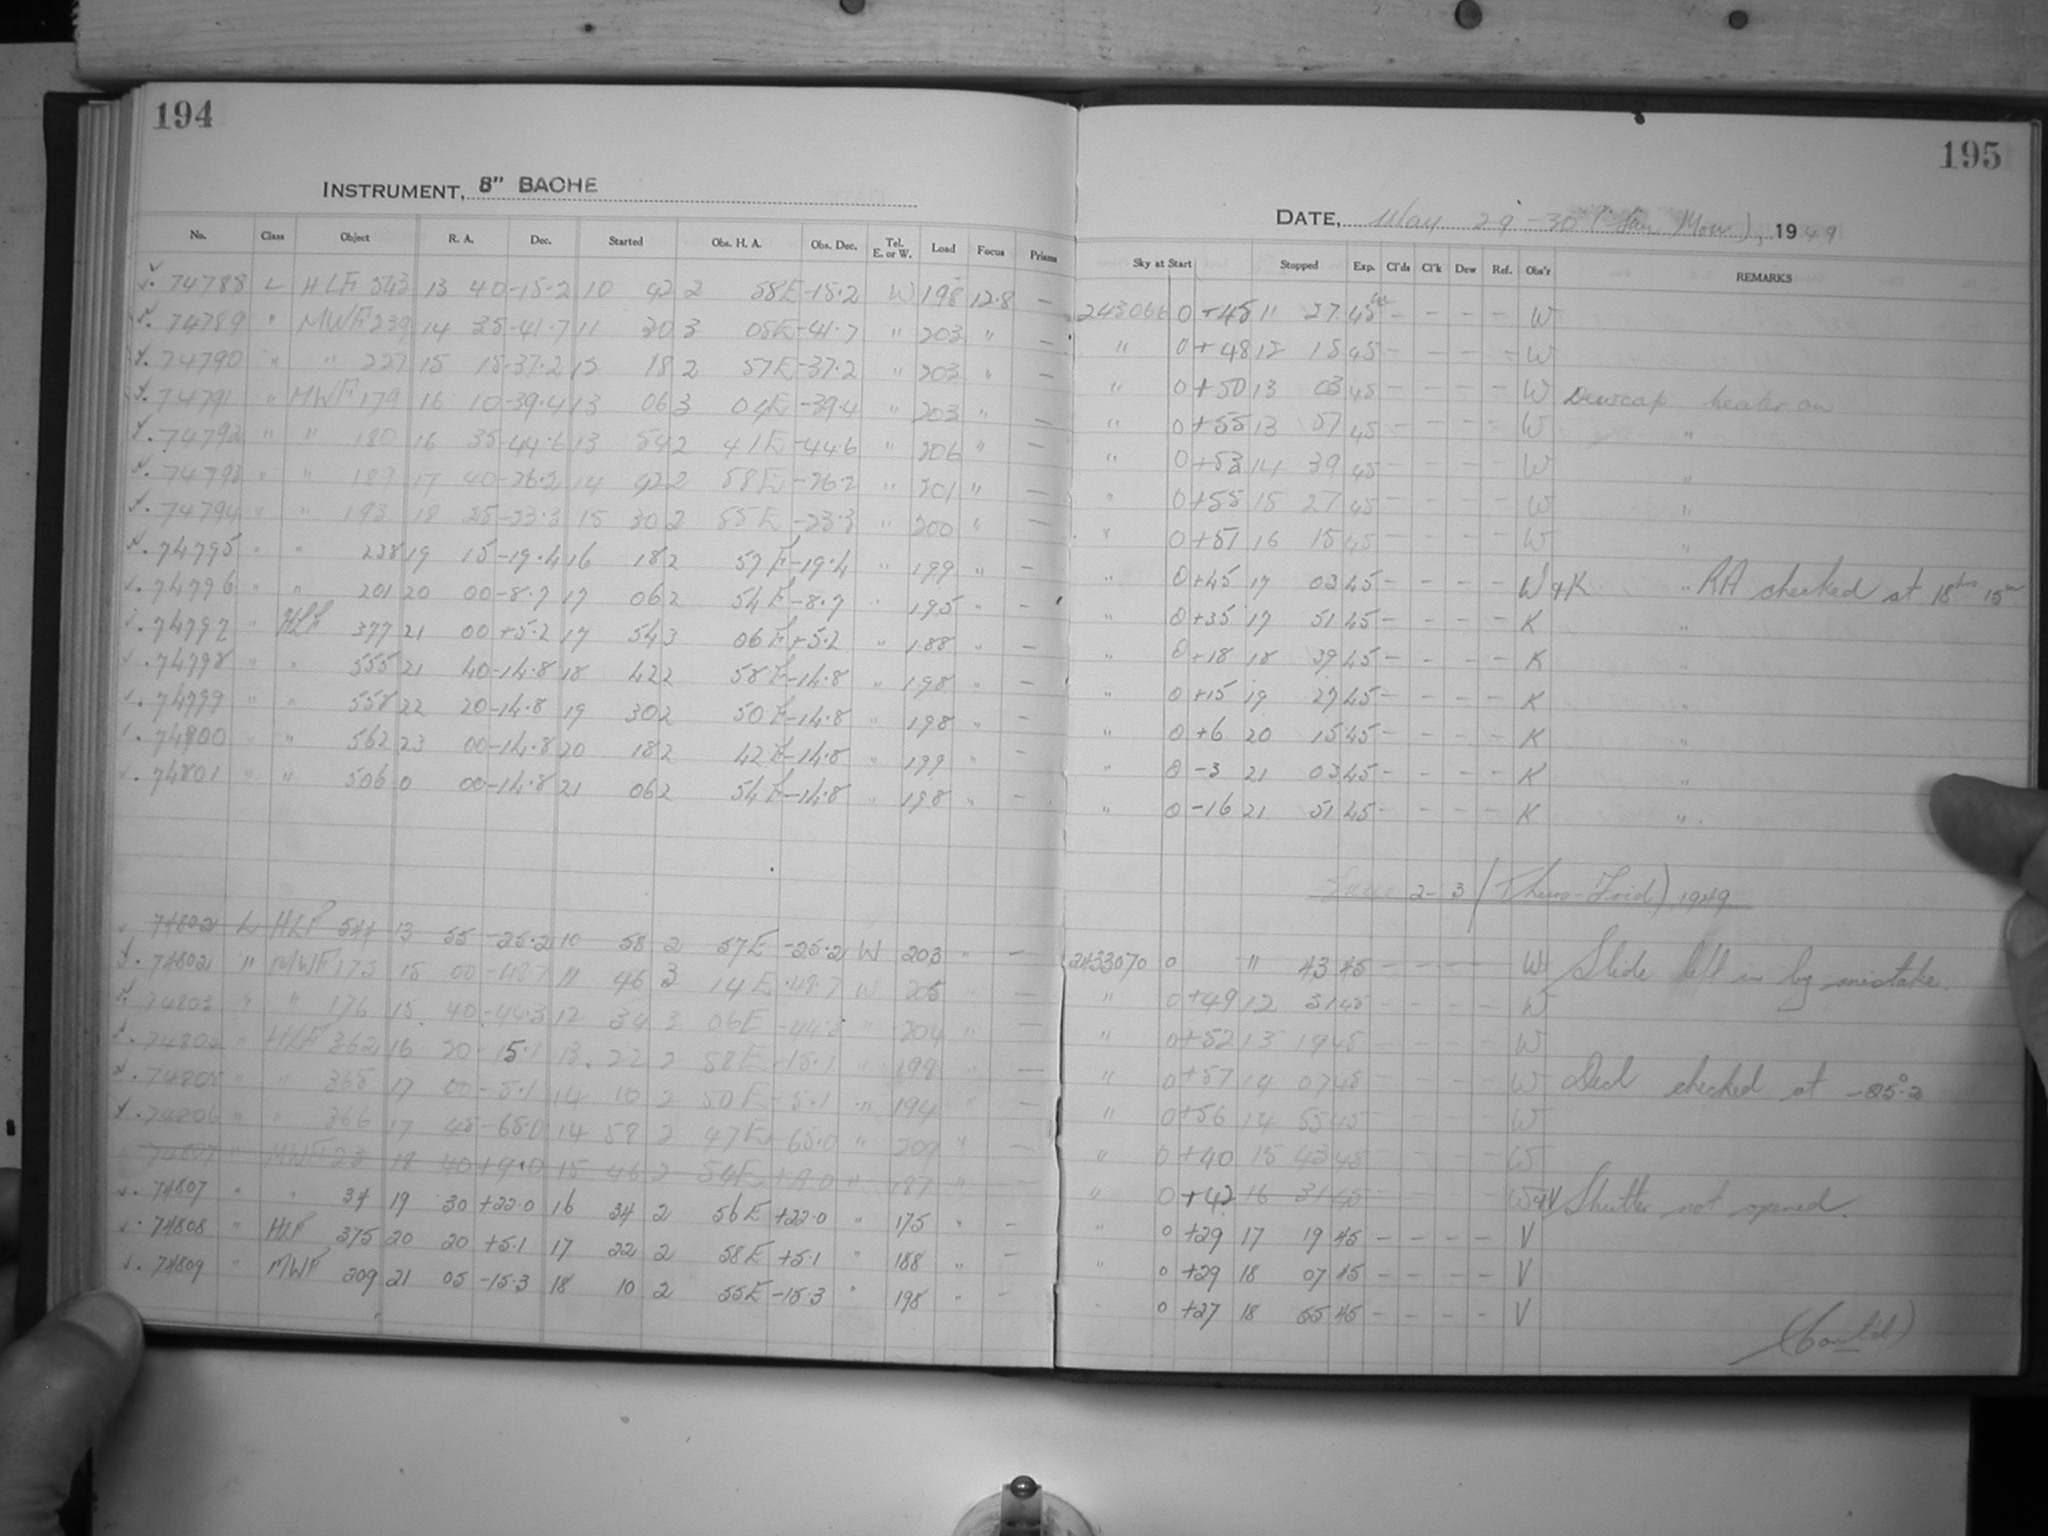 194
INSTRUMENT, 8" BACHE
No. Class Object R. A. Dec. Started Obs. H. A. Obs. Dec. Tel. E. or W. Load Focus Prisms
74788 L HLF 543 13 40 -15.2 10 42 2 58E -15.2 W 198 12.8 —
74789 " MWF 239 14 35 -41.7 11 30 3 05E -41.7 " 203 " —
74790 " " 227 15 15 -37.2 12 18 2 57E -37.2 " 203 " —
74791 " MWF 179 16 10 -39.4 13 06 3 04E -39.4 " 203 " —
74792 " " 180 16 35 -44.6 13 54 2 41E -44.6 " 206 " —
74793 " " 189 17 40 -26.2 14 42 2 58E -26.2 " 201 " —
74794 " " 193 18 25 -23.3 15 30 2 55E -23.3 " 200 " —
74795 " " 238 19 15 -19.4 16 18 2 57E -19.4 " 199 " —
74796 " " 201 20 00 -8.7 17 06 2 54E -8.7 " 195 " —
74797 " HLF 377 21 00 +5.2 17 54 3 06E +5.2 " 188 " —
74798 " " 555 21 40 -14.8 18 42 2 58E -14.8 " 198 " —
74799 " " 558 22 20 -14.8 19 30 2 50E -14.8 " 198 " —
74800 " " 562 23 00 -14.8 20 18 2 42E -14.8 " 199 " —
74801 " " 506 0 00 -14.8 21 06 2 54E -14.8 " 198 " —
74802 L HLF 544 13 55 -25.2 10 58 2 57E -25.2 W 203 " —
74802 " MWF 175 15 00 -48.7 11 46 3 14E -48.7 W 205 " —
74803 " " 176 15 40 -44.3 12 34 3 06E -44.3 " 204 " —
74804 " HLF 362 16 20 -15.1 13 22 2 58E -15.1 " 198 " —
74805 " " 365 17 00 -5.1 14 10 2 50E -5.1 " 194 " —
74806 " " 366 17 45 -65.0 14 58 2 47E 65.0 " 209 " —
74807 " MWF 23 18 40 +9.0 15 46 2 54E +9.0 " 187 " —
74807 " " 34 19 30 +22.0 16 34 2 56E +22.0 " 175 " —
74808 " HLF 375 20 20 +5.1 17 22 2 58E +5.1 " 188 " —
74809 " MWF 209 21 05 -15.3 18 10 2 55E -15.3 " 198 " —
195
DATE, May 29-30 (Sun. Mon.), 1949
Sky at Start Stopped Exp. Cl'ds Cl'k Dew Ref. Obs'r REMARKS
243066 0 +45 11 27 45 m — — — — W
" 0 +48 12 15 45 — — — — W
" 0 +50 13 03 45 — — — — W Dewcap heater on
" 0 +55 13 51 45 — — — — W "
" 0 +53 14 39 45 — — — — W "
" 0 +55 15 27 45 — — — — W "
" 0 +51 16 15 45 — — — — W "
" 0 +45 17 03 45 — — — — W+K " RA checked at 18hrs 15m
" 0 +35 17 51 45 — — — — K "
" 0 +18 18 39 45 — — — — K "
" 0 +15 19 27 45 — — — — K "
" 0 +6 20 15 45 — — — — K "
" 0 -3 21 03 45 — — — — K "
" 0 -16 21 51 45 — — — — K "
June 2-3 (Thurs-Frid) 1949
2433070 0 11 43 45 — — — — W Slide left in by mistake.
" 0 +49 12 31 45 — — — — W
" 0 +52 13 19 45 — — — — W
" 0 +57 14 07 45 — — — — W Decl checked at -25°.2
" 0 +56 14 55 45 — — — — W
" 0 +40 15 43 45 — — — — W
" 0 +42 16 31 45 — — — — W+V Shutter not opened.
" 0 +29 17 19 45 — — — — V
" 0 +29 18 07 45 — — — — V
0 +27 18 55 45 — — — — V
(Contd)